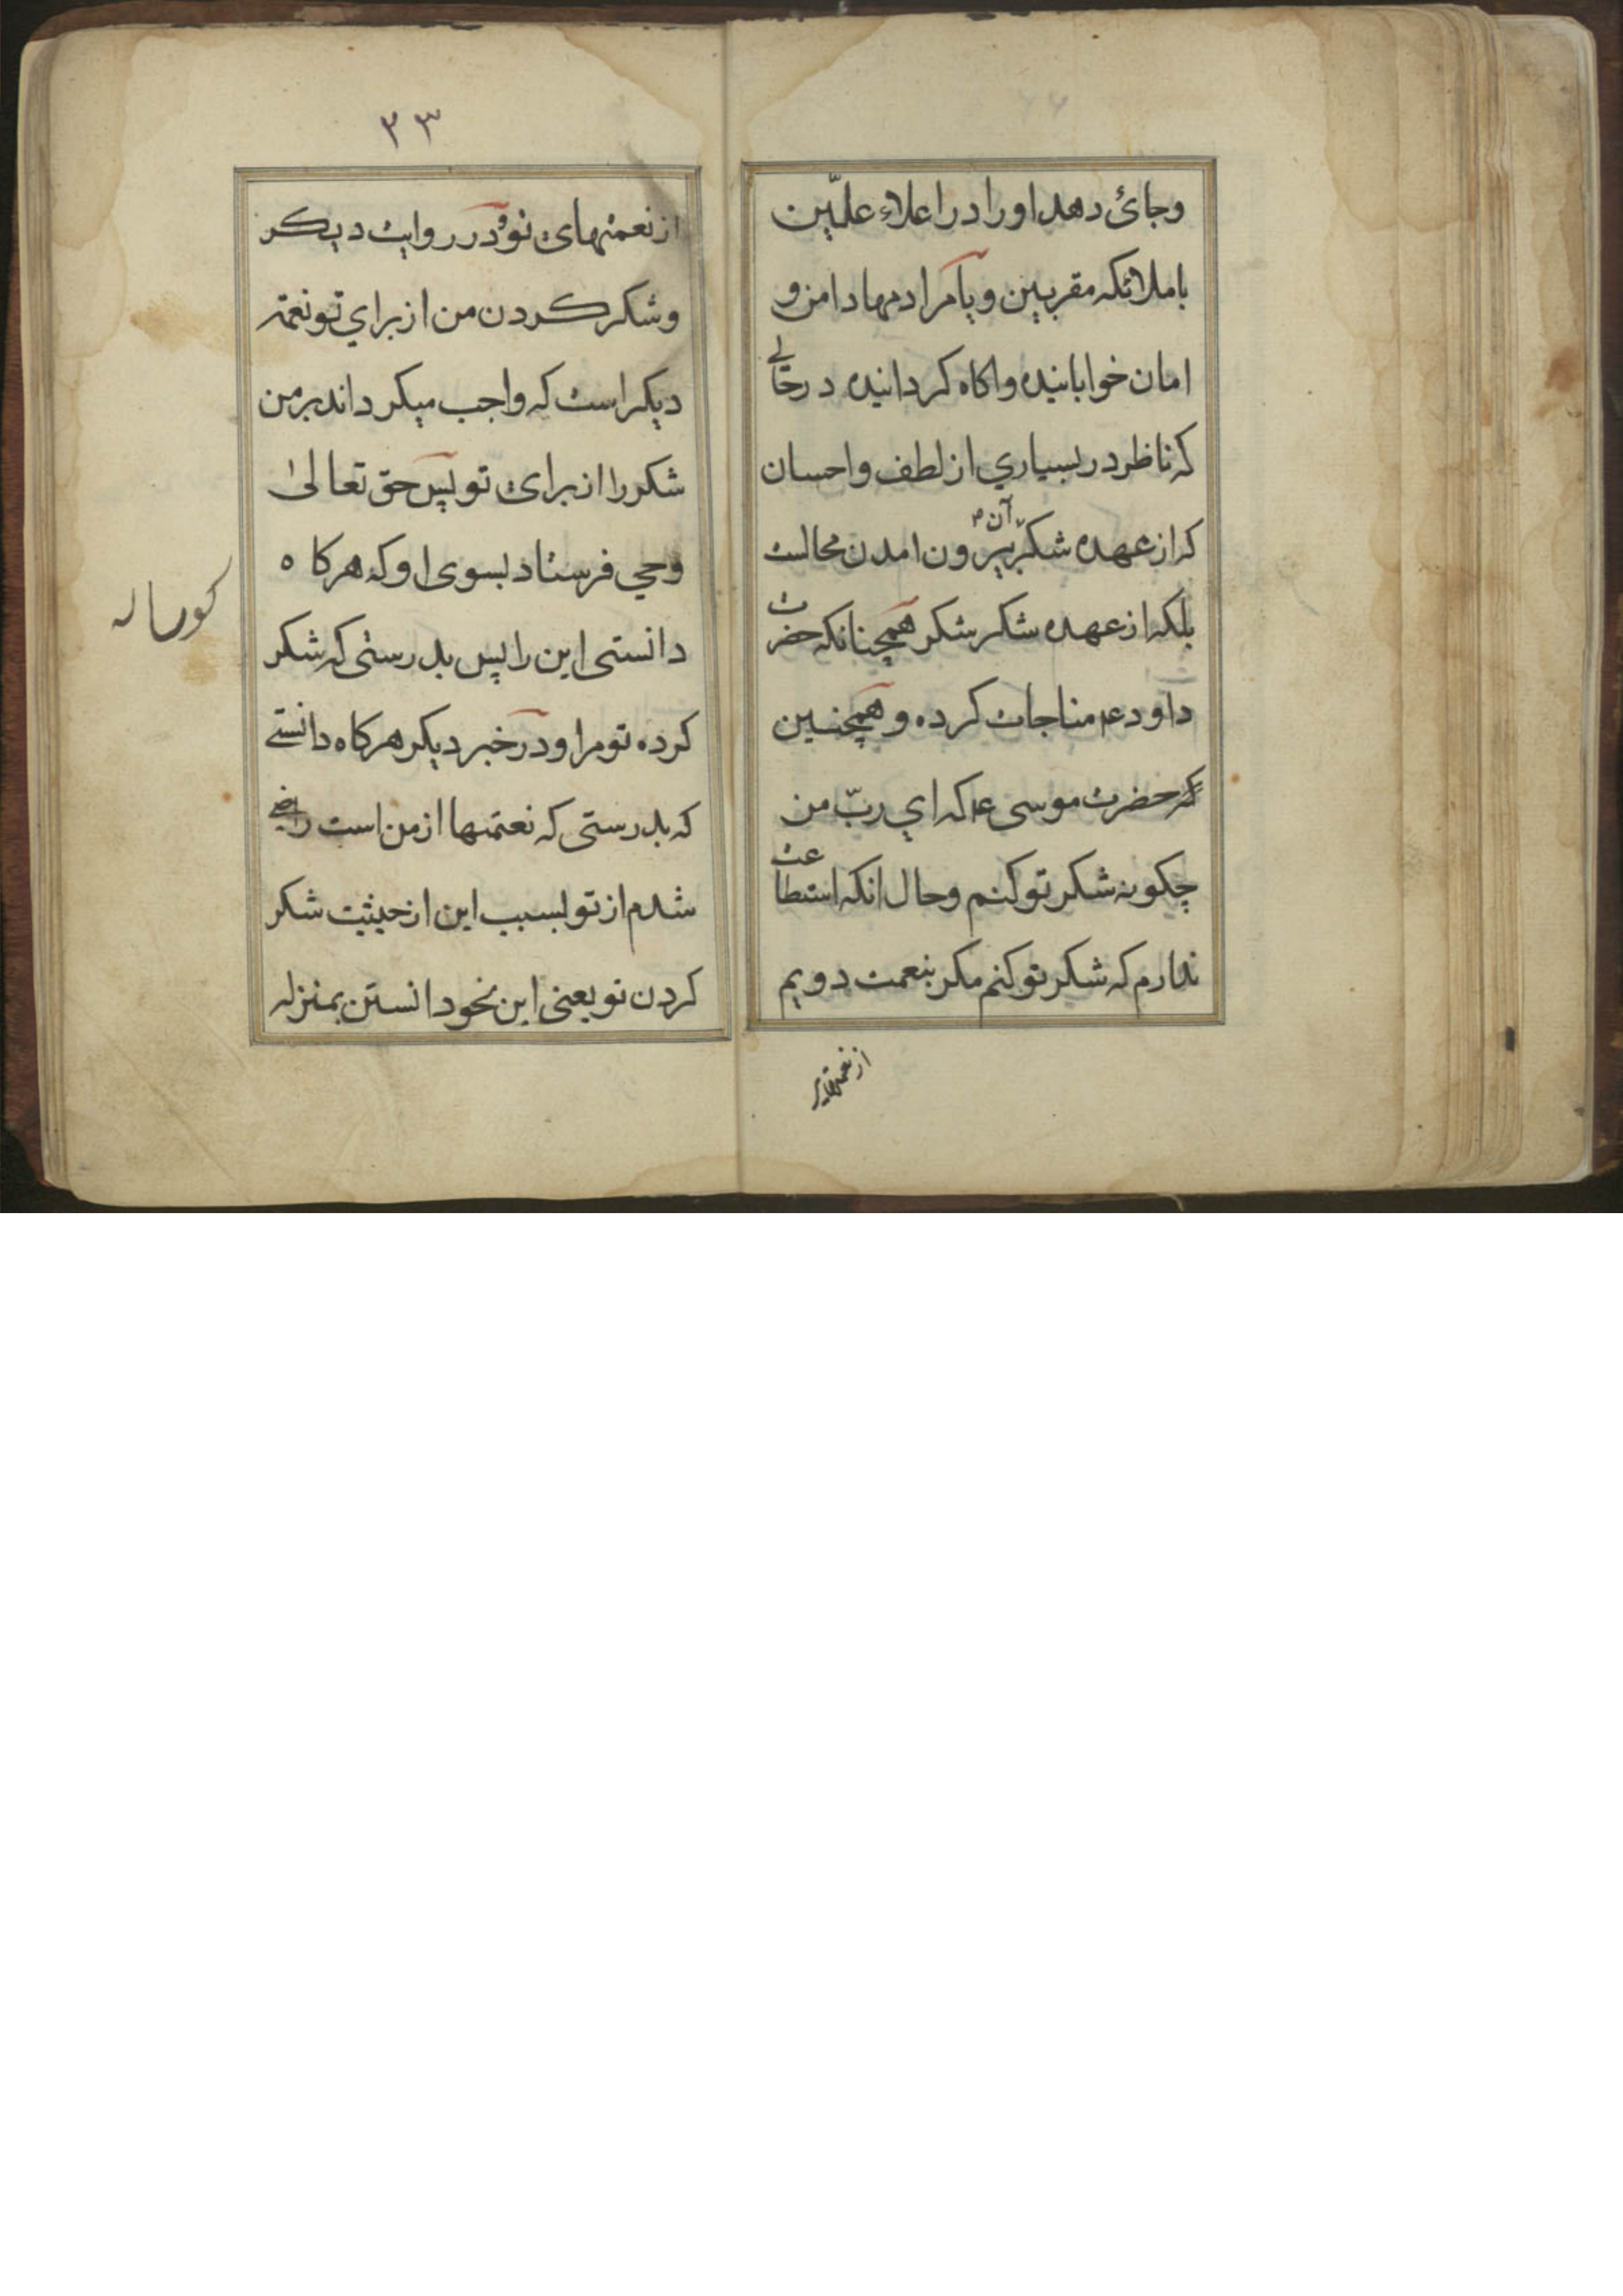 وجائ دهد اورا در اعلاء علّیین
با ملائکه مقربین و یا مرا در مهاد امن و
امان خوابانیده واکاه کردانیده در حالے
که ناظر در بسیاري از لطف و احسان
که از عهده شکر آن بیرون امدن محالست
بلکه از عهده شکر شکر همچنانکه حضرت
داود ع مناجات کرده و همچنین
که حضرت موسی ع که اي ربّ من
چکونه شکر تو کنم وحال انکه استطاعت
ندارم که شکر تو کنم مکر بنعمت دویم
از نعمتهای
۳۳
از نعمتهای تو و در روایت دیکر
و شکر کردن من از براي تو نعمة
دیکر است که واجب میکرداند بر من
شکر را از برای تو پس حق تعالیٰ
وحي فرستاد بسوی او که هرکاه
دانستی این را پس بدرستی که شکر
کرده تو مرا و در خبر دیکر هرکاه دانستے
که بدرستی که نعتمها از من است راضے
شدم از تو بسبب این از حیثیت شکر
کردن تو یعنی این نحو دانستن بمنزله